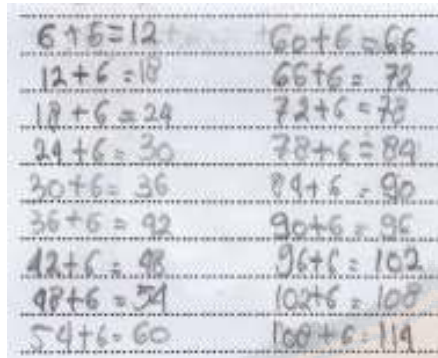 6+6=12
12+6=18
18+6=24
24+6=30
30+6=36
36+6=42
42+6=48
48+6=54
54+6=60
60+6=66
66+6=72
72+6=78
78+6=84
84+6=90
90+6=96
96+6=102
102+6=108
108+6=114